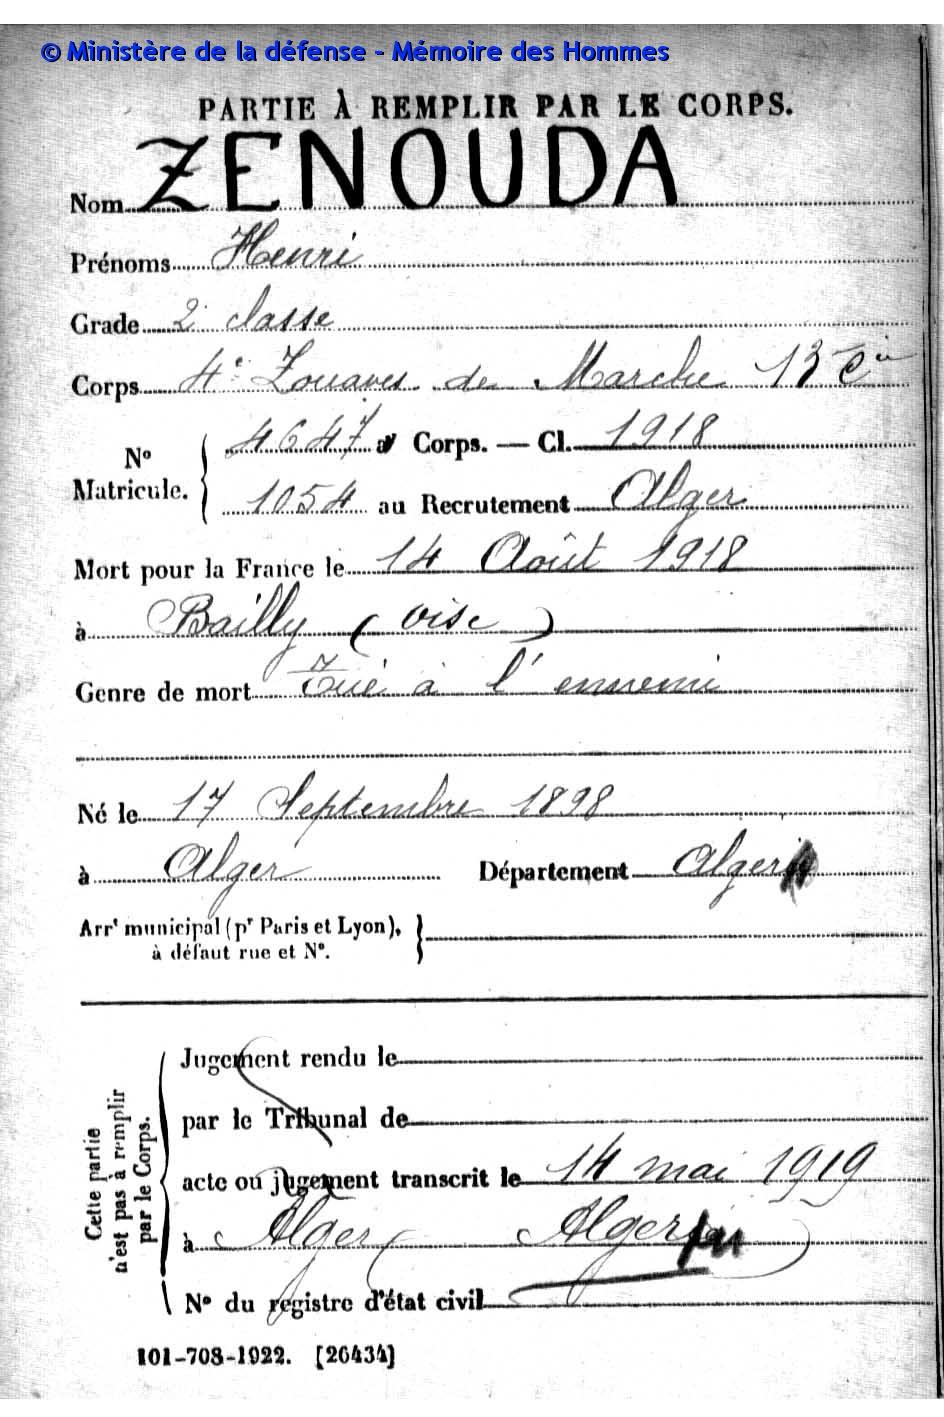 © Ministère de la défense - Mémoire des Hommes
PARTIE À REMPLIR PAR LE CORPS.
Nom ZENOUDA
Prénoms Henri
Grade 2e classe
Corps 4e Zouaves de Marche 13 Cie
No Matricule. { 4647 au Corps. — Cl. 1918
1054 au Recrutement Alger
Mort pour la France le 14 Août 1918
à Bailly (oise)
Genre de mort Tué à l'ennemi
Né le 17 Septembre 1898
à Alger Département Alger
Arrt municipal (pr Paris et Lyon), }
à défaut rue et No.
Cette partie
n'est pas à remplir
par le Corps.
Jugement rendu le
par le Tribunal de
acte ou jugement transcrit le 14 mai 1919
à Alger Alger
No du registre d'état civil
101-708-1922. [26434]